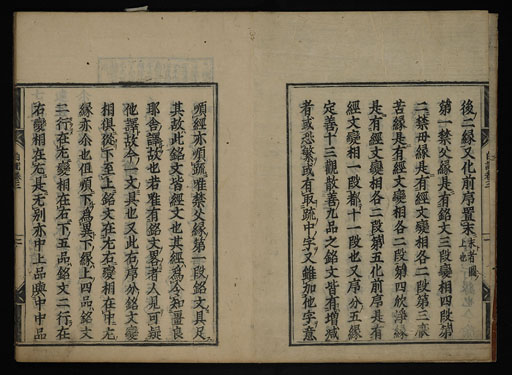 後二緣又化前序置末末者圖上也
第一禁父緣是有銘文三段變相四段第
二禁母緣是有經文變相各二段第三厭
苦緣是有經文變相各二段第四欣淨緣
是有經文變相各二段第五化前序是有
經文變相一段都十一段也又序分五緣
定善十三觀散善九品之銘文皆有增減
者或恐繁或有取疏中字又雖加他字意
順經亦順疏唯禁父緣第一段銘文具足
其故此銘文皆經文也其經為令知畺良
耶舍譯故也若雖有銘文畧者人見可疑
他譯故令一文具也又此右序分銘文變
相俱從下至上銘文在左右變相在中左
緣亦尒也但順下為異下緣上四品銘文
二行在左變相在右下五品銘文二行在
右變相在右是无別亦中上品與中中品